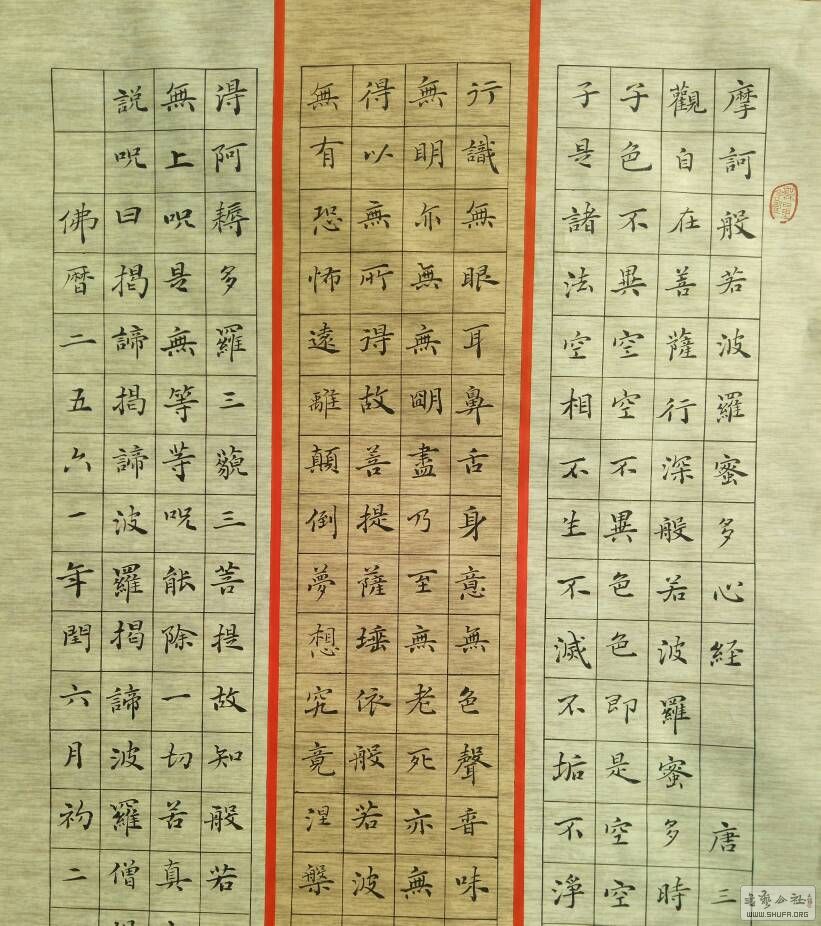 摩訶般若波羅蜜多心経 唐三
觀自在菩薩行深般若波羅蜜多時
子色不異空空不異色色即是空空
子是諸法空相不生不滅不垢不淨
行識無眼耳鼻舌身意無色聲香味
無明亦無無明盡乃至無老死亦無
得以無所得故菩提薩埵依般若波
無有恐怖遠離顛倒夢想究竟涅槃
得阿耨多羅三藐三菩提故知般若
無上呪是無等等呪能除一切苦真
説呪曰揭諦揭諦波羅揭諦波羅僧
佛暦二五六一年閏六月初二
WWW.SHUFA.ORG